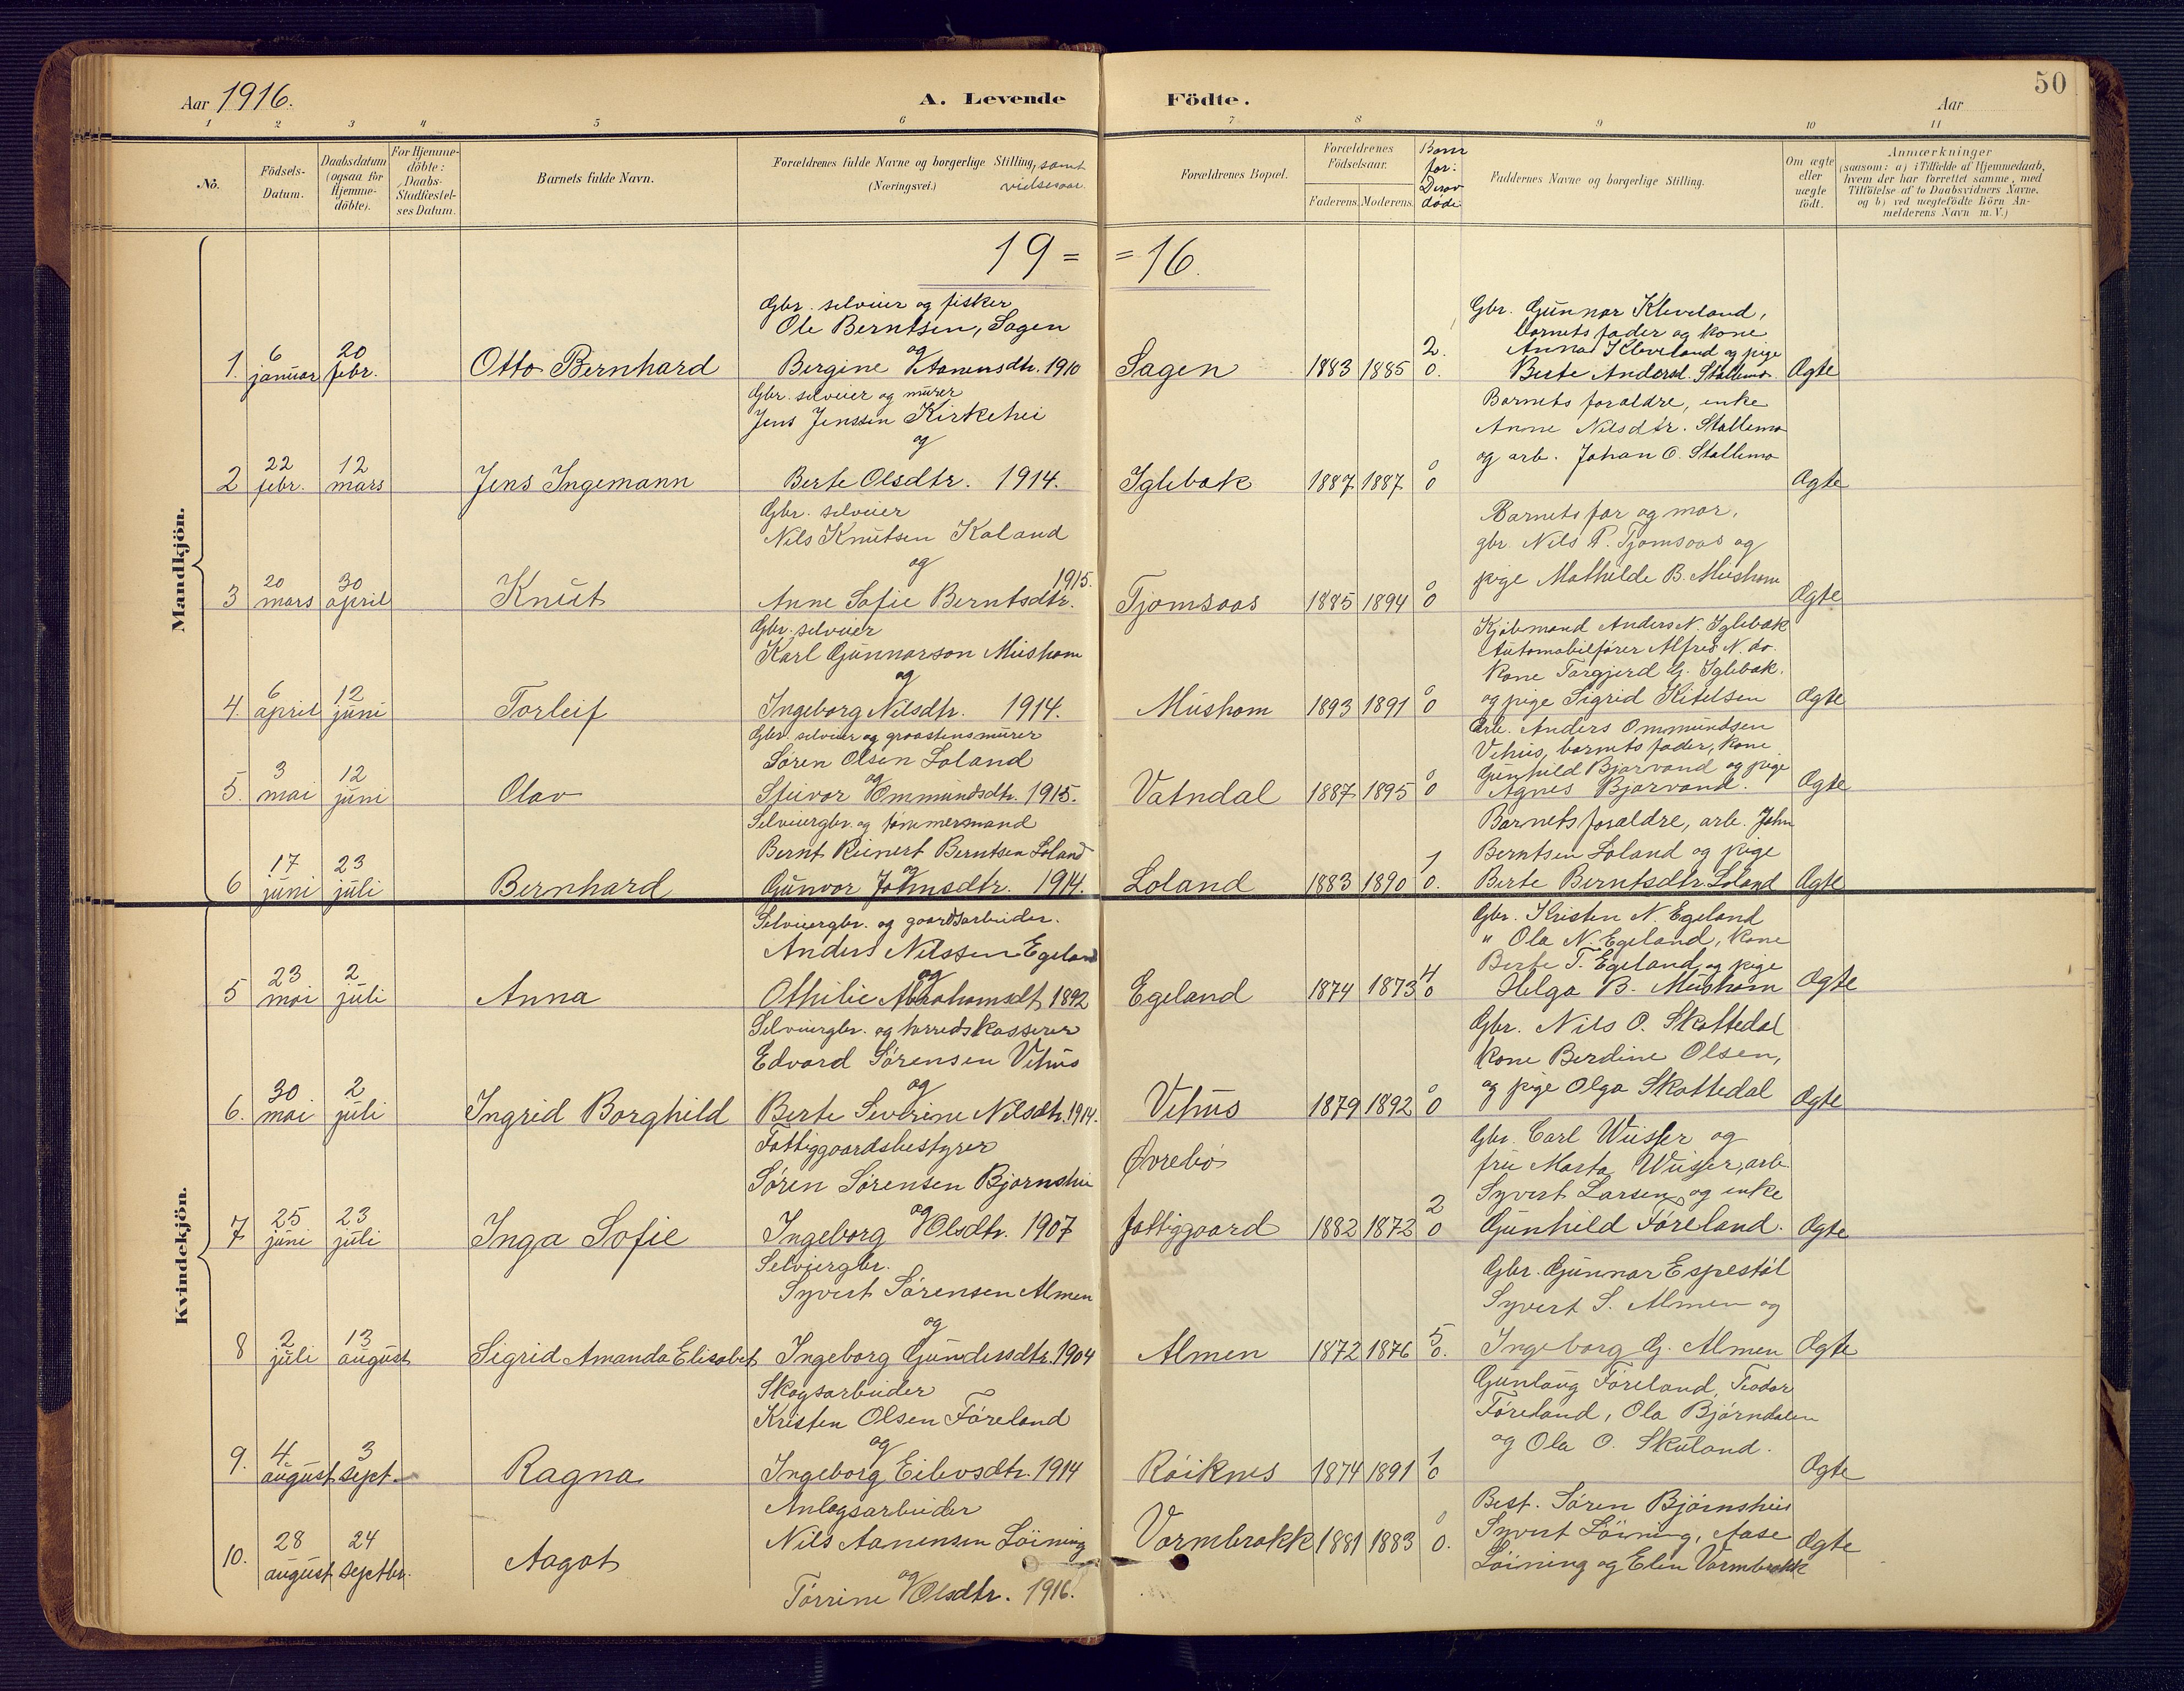 Aar 1916.
A. Levende Födte.
Aar
50
1 2 3 4 5 6 7 8 9 10 11
No.
Födsels-
Datum.
Daabsdatum
(ogsaa for
Hjemme-
döbte).
For Hjemme-
döbte:
Daabs-
Stadfæstel-
ses Datum.
Barnets fulde Navn.
Forældrenes fulde Navne og borgerlige Stilling, samt
(Næringsvei.) vielsesaar.
Forældrenes Bopæl.
Forældrenes
Födselsaar.
Faderens. Moderens.
Barn
før:
Derav
døde
Faddernes Navne og borgerlige Stilling.
Om ægte
eller
uægte
födt.
Anmærkninger
(saasom: a) i Tilfælde af Hjemmedaab,
hvem der har forrettet samme, med
Tilföielse af to Daabsvidners Navne,
og b) ved uægtefödte Börn An-
melderens Navn m. V.)
19 = = 16.
Mandkjön.
1. 6 januar
20 febr.
Otto Bernhard
Gbr. selveier og fisker
Ole Berntsen, Sagen
og
Bergine Aanensdtr. 1910
Sagen
1883 1885
2.
0.
Gbr. Gunnar Kleveland,
barnets fader og kone
Anna Kleveland og pige
Berte Andersd. Stallemo
Ægte
2 22 febr.
12 mars
Jens Ingemann
Gbr. selveier og murer
Jens Jenssen Kirkehei
og
Berte Olsdtr. 1914.
Iglebæk
1887 1887
0
0
Barnets forældre, enke
Anne Nilsdtr. Stallemo
og arb. Johan O. Stallemo
Ægte
3 20 mars
30 april
Knut
Gbr. selveier
Nils Knutsen Kaland
og
1915.
Anne Sofie Berntsdtr.
Tjomsaas
1885 1894
0
0
Barnets far og mor,
gbr. Nils P. Tjomsaas og
pige Mathilde B. Mushom
Ægte
4. 6 april
12 juni
Torleif
Gbr. selveier
Karl Gunnarson Mushom
og
Ingeborg Nilsdtr. 1914.
Mushom
1893 1891
0
0
Kjøbmand Anders N. Iglebæk
Automobilfører Alfred N. do.
kone Torgjerd G. Iglebæk.
og pige Sigrid Kitelsen
Ægte
5. 3 mai
12 juni
Olav
Gbr. selveier og graastensmurer
Søren Olsen Loland
og
Steivor Ommundsdtr. 1915.
Vatndal
1887 1895
0
0
Arb. Anders Ommundsen
Vehus, barnets fader, kone
Gunhild Bjorvand og pige
Agnes Bjorvand.
Ægte
6 17 juni
23 juli
Bernhard
Selveiergbr. og tømmermand
Bernt Reinert Berntsen Loland
og
Gunvor Johnsdtr. 1914.
Loland
1883 1890
1
0.
Barnets forældre, arb. John
Berntsen Loland og pige
Berte Berntsdtr. Loland
Ægte
Kvindekjön.
5 23 mai
2 juli
Anna
Selveiergbr. og gaardsarbeider.
Anders Nilssen Egeland
og
Othilie Abrahamsdt. 1892
Egeland
1874 1873
4
0
Gbr. Kristen N. Egeland
" Ola N. Egeland, kone
Berte T. Egeland og pige
Helga B. Mushom
Ægte
6. 30 mai
2 juli
Ingrid Borghild
Selveiergbr. og herredskasserer
Edvard Sørensen Vehus
og
Berte Severine Nilsdtr. 1914.
Vehus
1879 1892
0
0
Gbr. Nils O. Skattedal
kone Berdine Olsen,
og pige Olga Skattedal
Ægte
7 25 juni
23 juli
Inga Sofie
Fattiggaardsbestyrer
Søren Sørensen Bjørnshei
og
Ingeborg Olsdtr. 1907
Øvrebø
fattiggaard
1882 1872
2
0
Gbr. Carl Wisser og
fru Marta Wisser, arb.
Syvert Larsen og enke
Gunhild Føreland.
Ægte
8 2 juli
13 august
Sigrid Amanda Elisabet
Selveiergbr.
Syvert Sørensen Almen
og
Ingeborg Gundersdtr. 1904
Almen
1872 1876
5
0.
Gbr. Gunnar Espestøl
Syvert S. Almen og
Ingeborg G. Almen
Ægte
9. 4 august
3 sept.
Ragna
Skogsarbeider
Kristen Olsen Føreland
og
Ingeborg Eilevsdtr. 1914
Røiknes
1874 1891
1
0
Gunlaug Føreland, Teodor
Føreland, Ola Bjørndalen
og Ola O. Skuland.
Ægte
10. 28 august
24 septbr.
Aagot
Anlægsarbeider
Nils Aanensen Løining
og
Tørrine Olsdtr. 1916.
Varmbrækk
1881 1883
0
0.
Best. Søren Bjørnshei
Syvert Løining, Aase
Løining og Elen Varmbrækk
Ægte